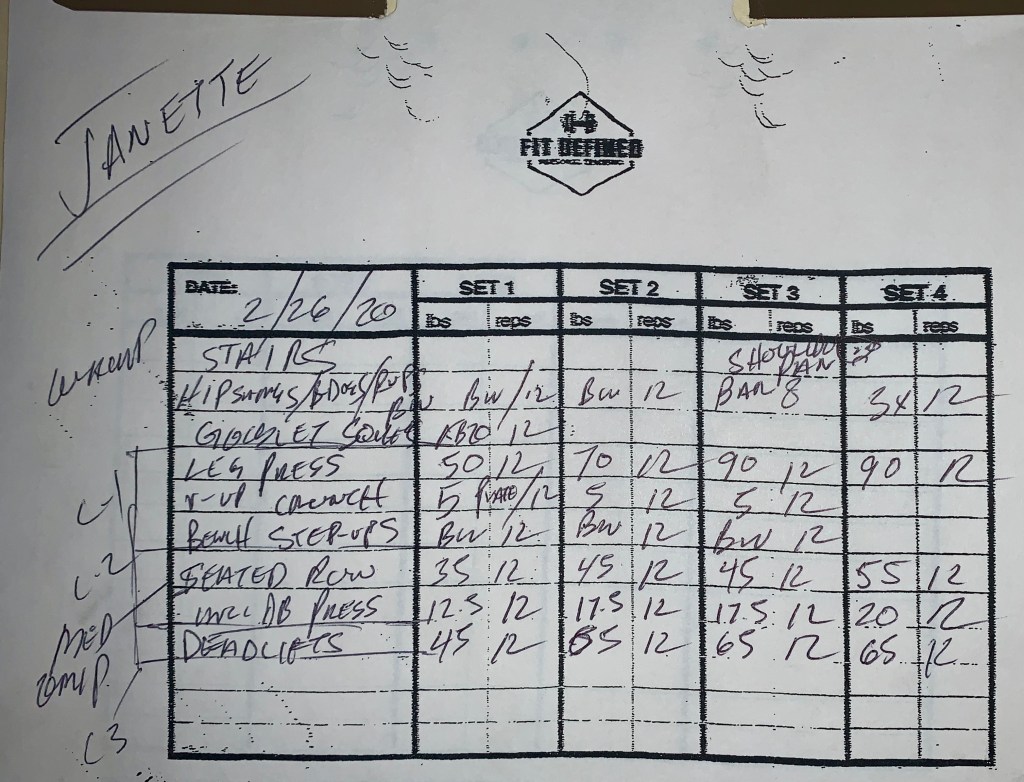 JANETTE
FIT DEFINED
PERSONAL TRAINING
DATE: 2/26/20 SET 1 SET 2 SET 3 SET 4
lbs reps lbs reps lbs reps lbs reps
WARMUP STAIRS SHOULDER
PAN
BW BW/12 BW 12 BAR 8 3x 12
GOBLET SQUATS KB20 12
LEG PRESS 50 12 70 12 90 12 90 12
C-1 V-UP CRUNCH 5 PLATE/12 5 12 5 12
BENCH STEP-UPS BW 12 BW 12 BW 12
C-2 SEATED ROW 35 12 45 12 45 12 55 12
MED INCL DB PRESS 12.5 12 17.5 12 17.5 12 20 12
DEADLIFTS 45 12 12 65 12 65 12
C3